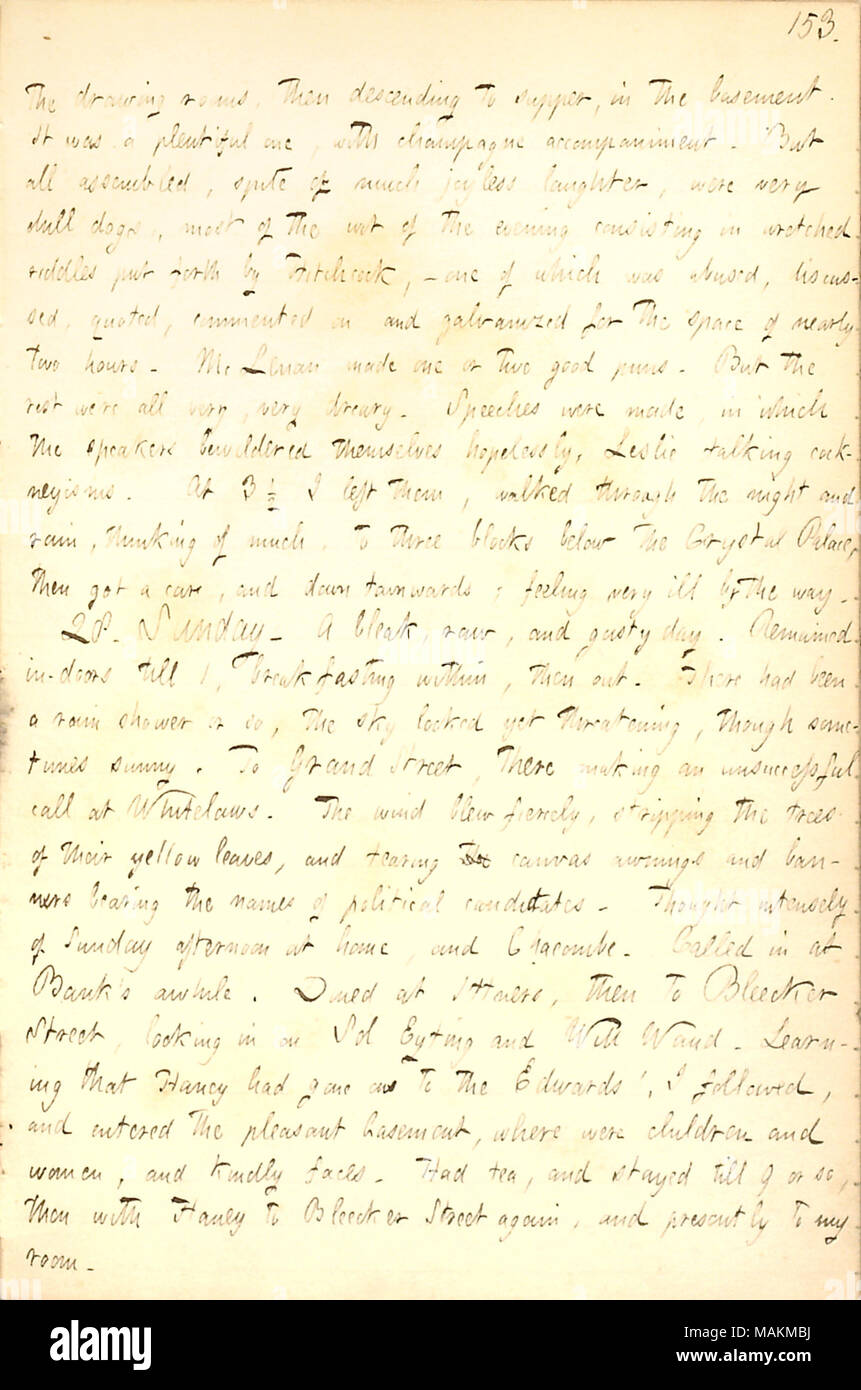 153.
the drawing rooms, then descending to supper, in the basement.
It was a plentiful one, with champagne accompaniment. But
all assembled, spite of much joyless laughter, were very
dull dogs, most of the wit of the evening consisting in wretched
riddles put forth by Hitchcock, — one of which was abused, discus-
sed, quoted, commented on and galvanized for the space of nearly
two hours. McLenan made one or two good puns. But the
rest were all very, very dreary. Speeches were made, in which
the speakers bewildered themselves hopelessly, Leslie talking cock-
neyisms. At 3 ½ I left them, walked through the night and
rain, thinking of much, to three blocks below the Crystal Palace,
then got a cars, and down townwards; feeling very ill by the way.
28. Sunday. A bleak, raw, and gusty day. Remained
in-doors till 1, breakfasting within, then out. There had been
a rain shower or so, the sky looked yet threatening, though some-
times sunny. To Grand Street, there making an unsuccessful
call at Whitelaws. The wind blew fiercely, stripping the trees
of their yellow leaves, and tearing the canvas awnings and ban-
ners bearing the names of political candidates. Thought intensely
of Sunday afternoon at home, and Chacombe. Called in at
Bank's awhile. Dined at Ittners, then to Bleecker
Street, looking in on Sol Eytinge and Will Waud. Learn-
ing that Haney had gone on to the Edwards', I followed,
and entered the pleasant basement, where were children and
women, and kindly faces. Had tea, and stayed till 9 or so,
then with Haney to Bleecker Street again, and presently to my
room.
alamy
Image ID: MAKMBJ
www.alamy.com